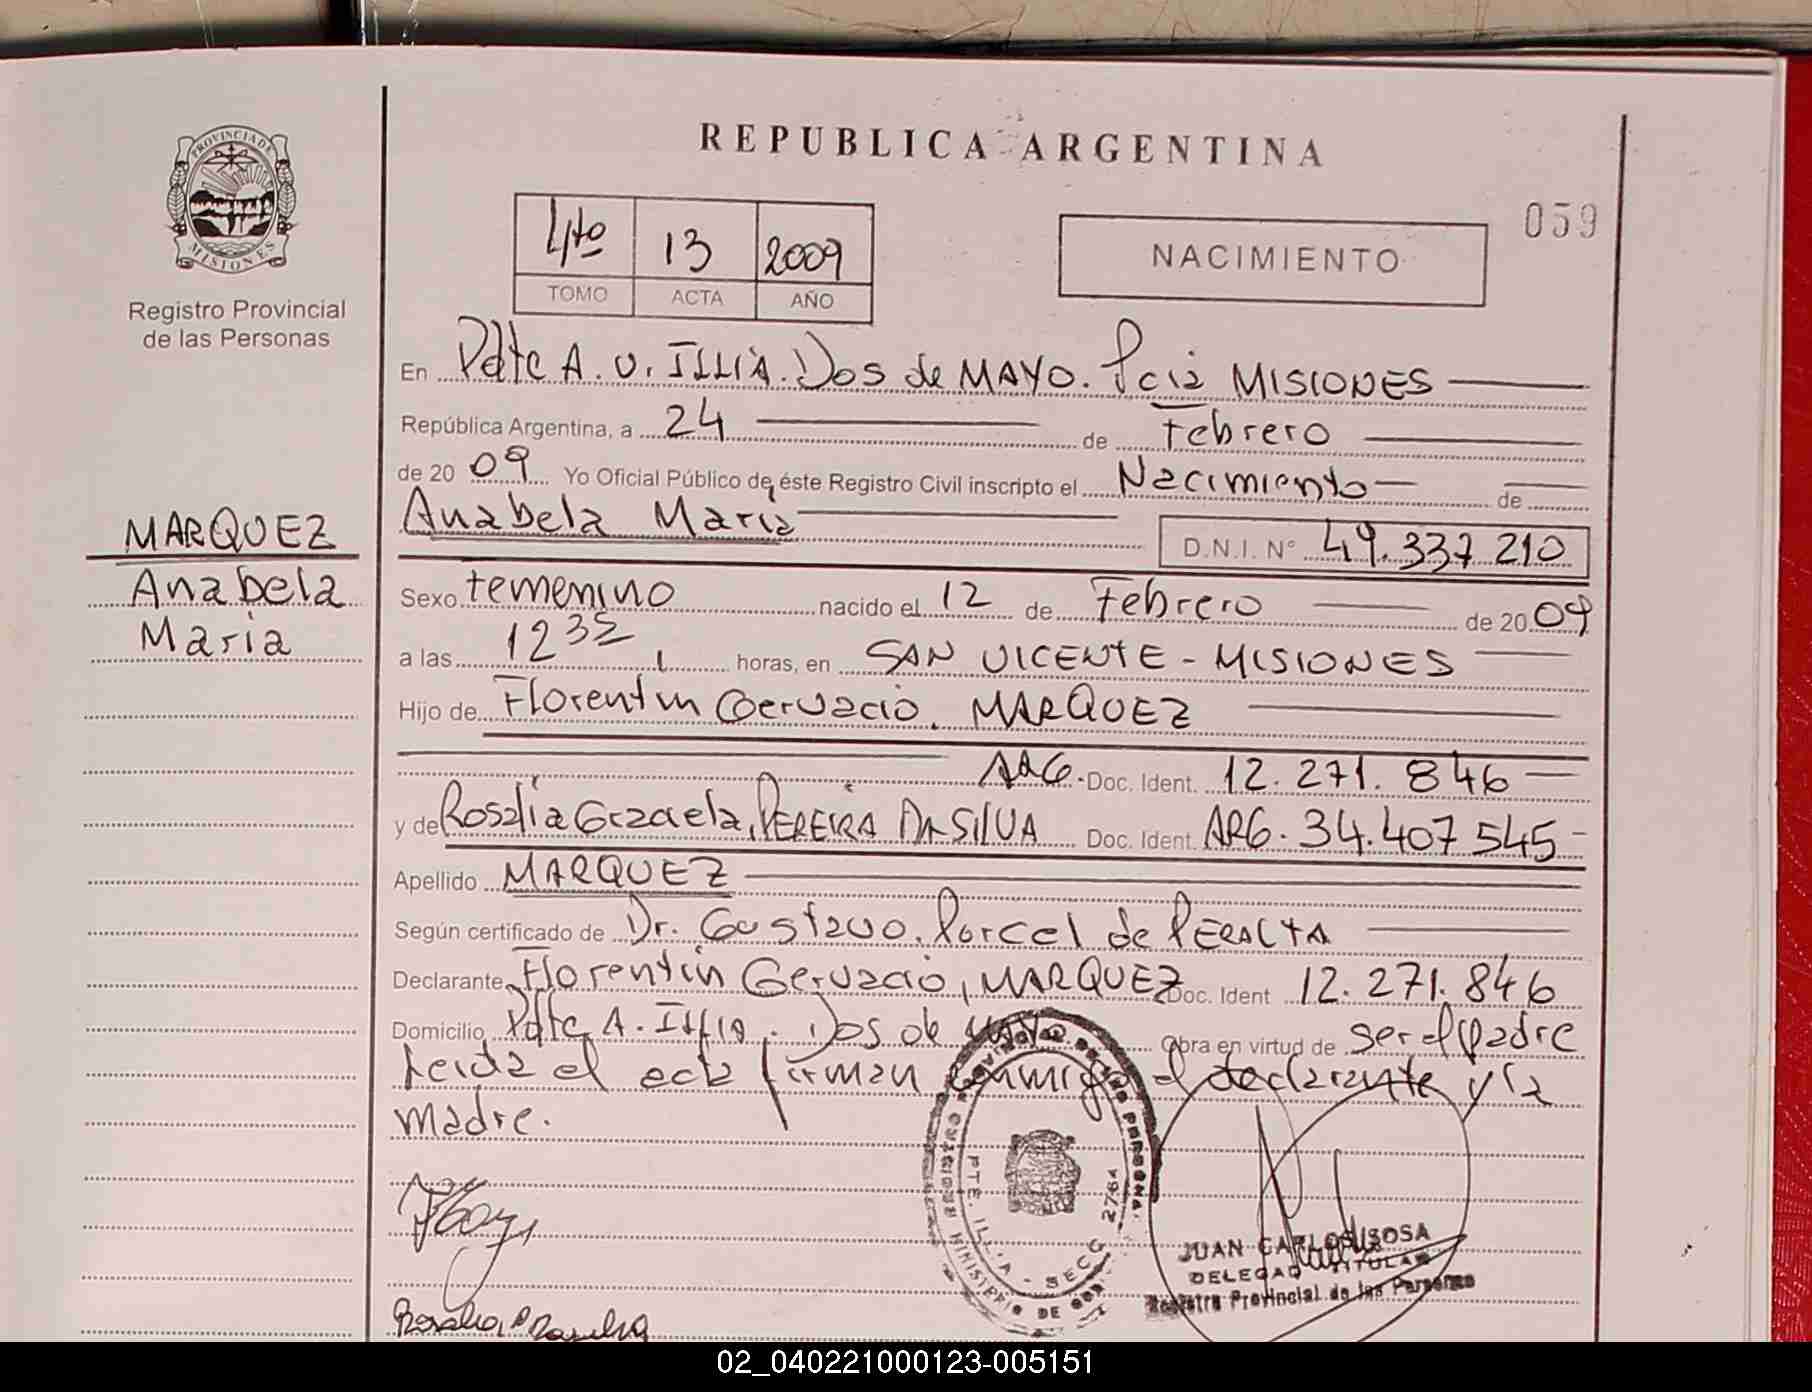 PROVINCIA DE
MISIONES
Registro Provincial
de las Personas
REPUBLICA ARGENTINA
059
4to 13 2009
TOMO ACTA AÑO
NACIMIENTO
En Pdte A. U. ILLIA. Dos de MAYO. Pcia MISIONES
República Argentina, a 24 de Febrero
de 20 09 Yo Oficial Público de éste Registro Civil inscripto el Nacimiento de
Anabela Maria D.N.I. Nº 49.337.210
MARQUEZ
Anabela
Maria
Sexo femenino nacido el 12 de Febrero de 20 09
a las 12 35 horas, en SAN VICENTE - MISIONES
Hijo de Florentin Gervacio, MARQUEZ
ARG. Doc. Ident. 12.271.846
y de Rosalia Graciela, PEREIRA DA SILVA Doc. Ident. ARG. 34.407.545
Apellido MARQUEZ
Según certificado de Dr. Gustavo, Porcel de PERALTA
Declarante Florentin Gervacio, MARQUEZ Doc. Ident 12.271.846
Domicilio Pdte A. Illia. Dos de Mayo Obra en virtud de ser el padre
Leida el acta firman conmigo el declarante y la
madre.
PTE. ILLIA - SECC. 2764
MINISTERIO DE GOB
JUAN CARLOS SOSA
DELEGADO TITULAR
Registro Provincial de las Personas
02_040221000123-005151